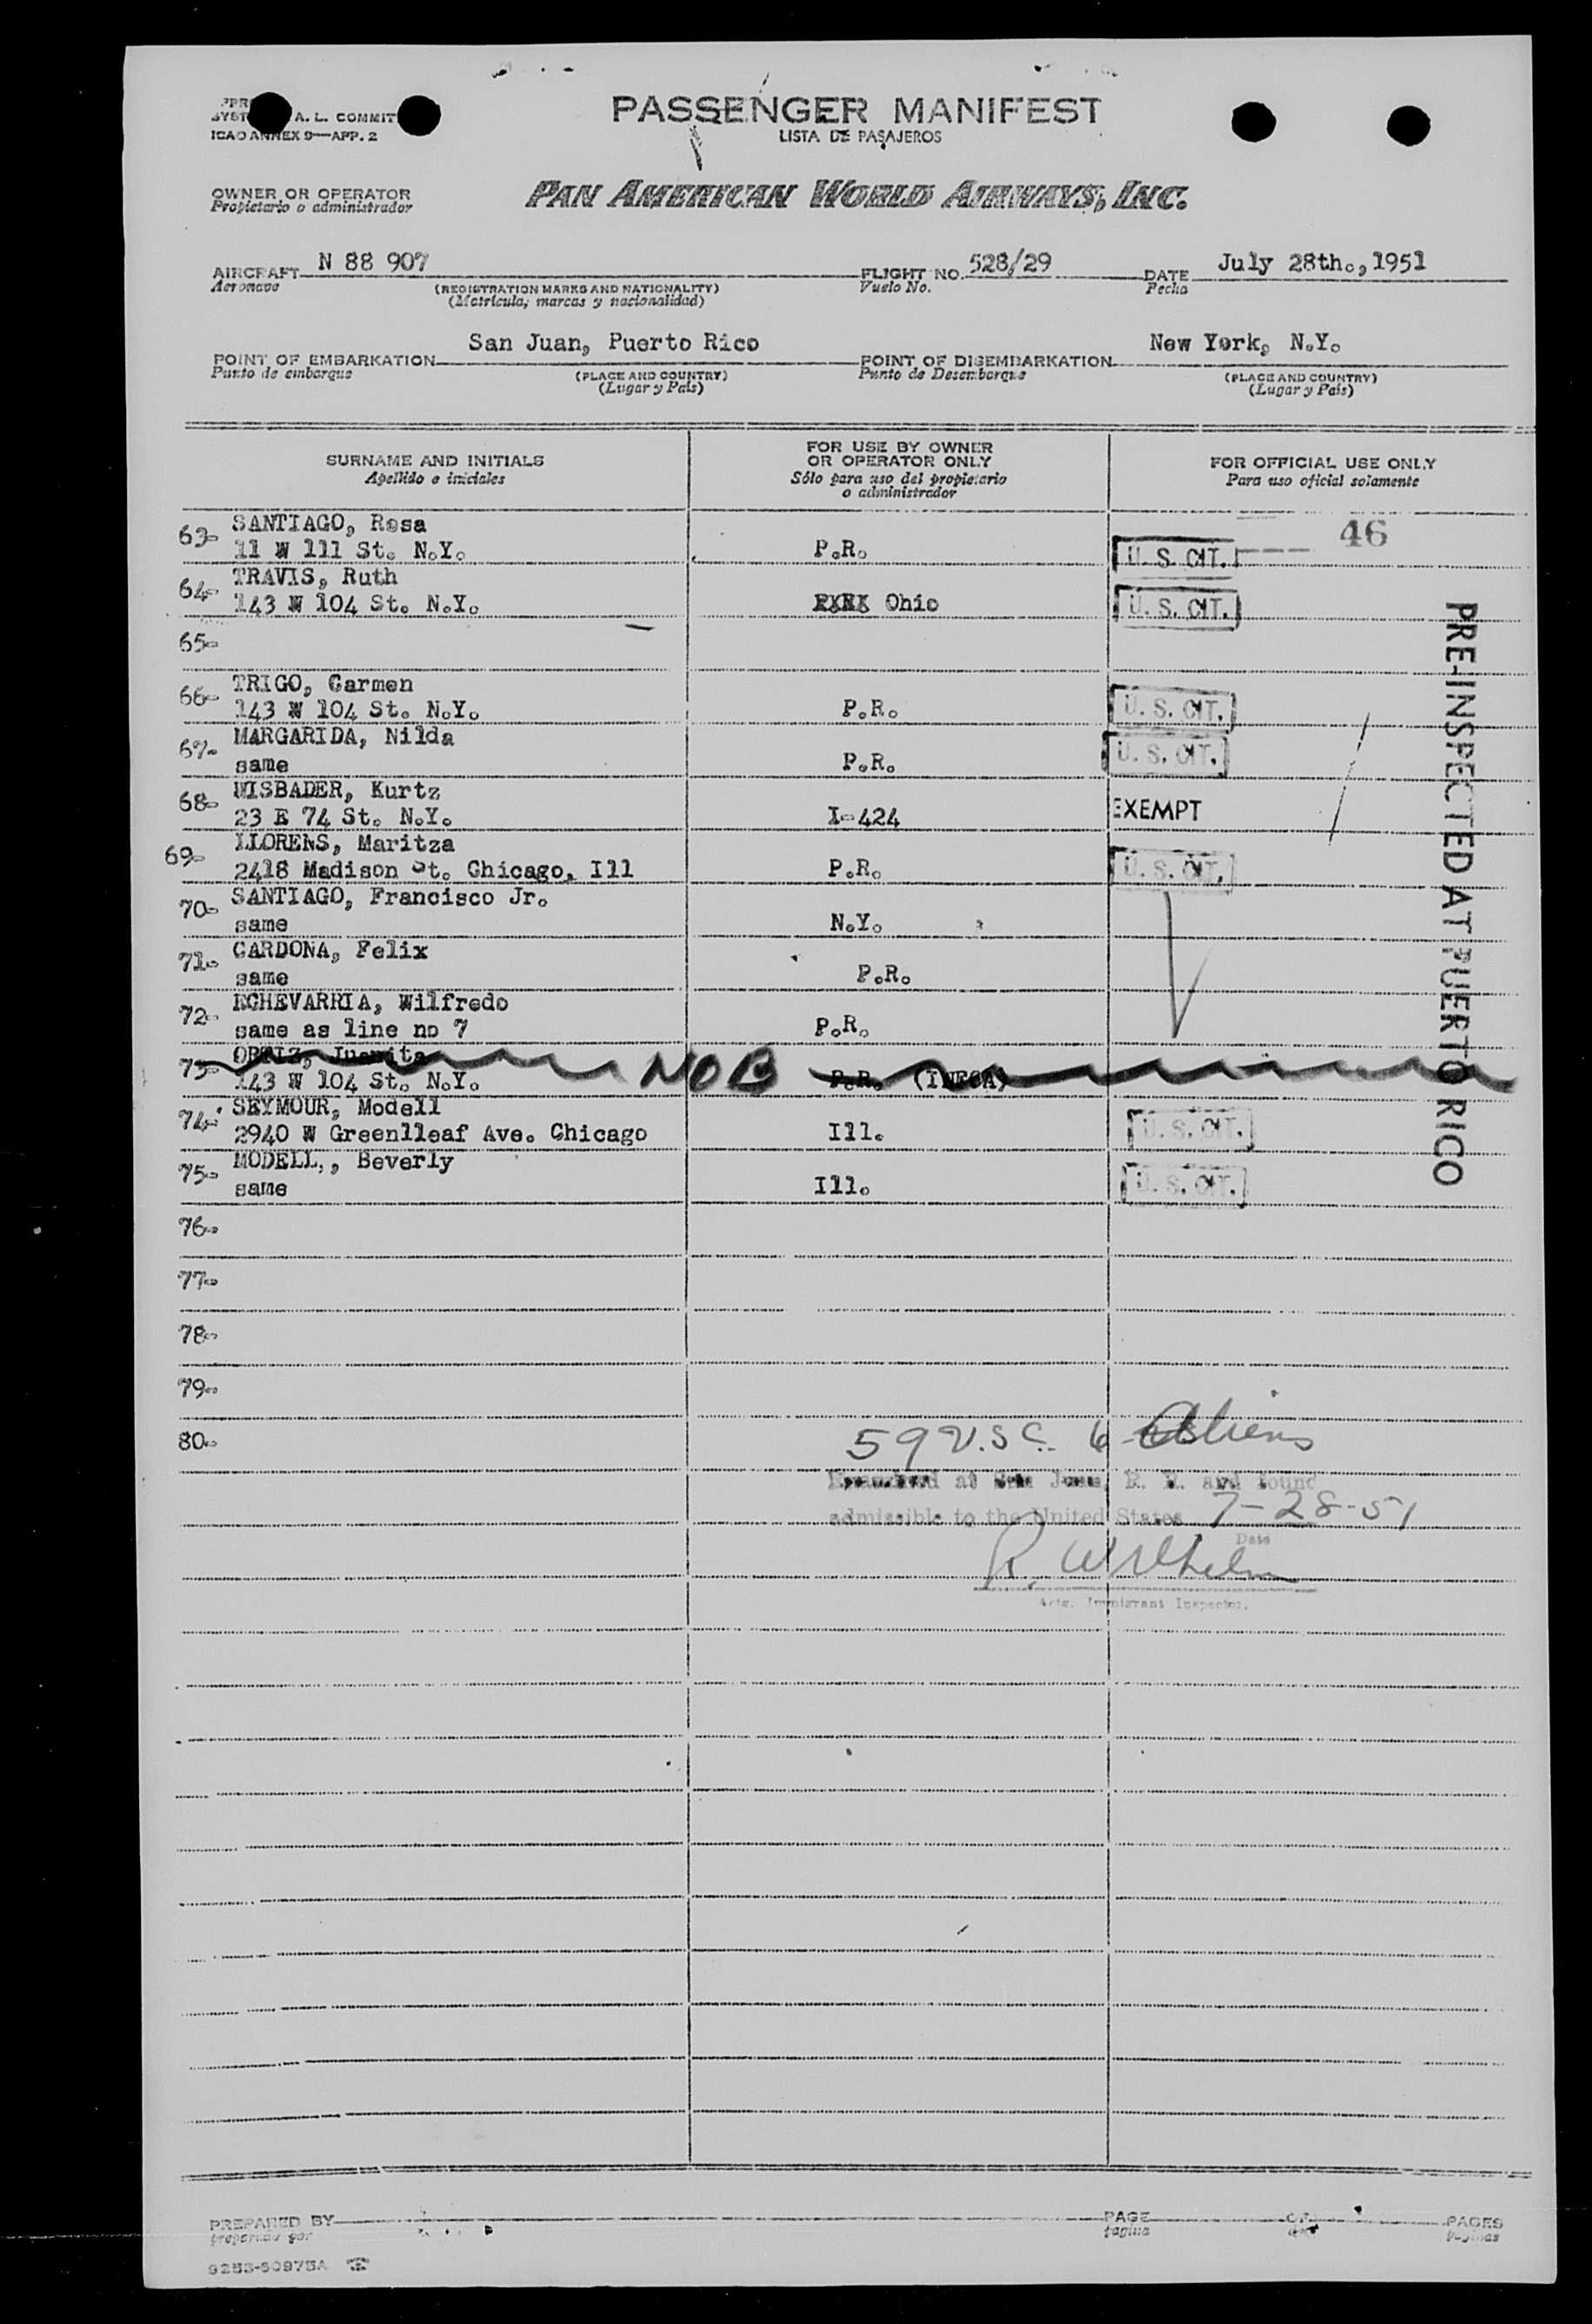 A. L. COMMIT
ICAO ANNEX 9—APP. 2
PASSENGER MANIFEST
LISTA DE PASAJEROS
OWNER OR OPERATOR
Propietario o administrador
PAN AMERICAN WORLD AIRWAYS, INC.
AIRCRAFT N 88 907 FLIGHT NO. 528/29 DATE July 28th.,1951
Aeronave (REGISTRATION MARKS AND NATIONALITY) Vuelo No. Fecha
(Matrícula, marcas y nacionalidad)
POINT OF EMBARKATION San Juan, Puerto Rico POINT OF DISEMBARKATION New York, N.Y.
Punto de embarque (PLACE AND COUNTRY) Punto de Desembarque (PLACE AND COUNTRY)
(Lugar y País) (Lugar y País)
SURNAME AND INITIALS
Apellido e iniciales
FOR USE BY OWNER
OR OPERATOR ONLY
Sólo para uso del propietario
o administrador
FOR OFFICIAL USE ONLY
Para uso oficial solamente
63- SANTIAGO, Rosa 46
11 W 111 St. N.Y. P.R. U. S. CIT.
64- TRAVIS, Ruth
143 W 104 St. N.Y. Ohio U. S. CIT.
65-
66- TRIGO, Carmen
143 W 104 St. N.Y. P.R. U. S. CIT.
67- MARGARIDA, Nilda
same P.R. U. S. CIT.
68- WISBADER, Kurtz
23 E 74 St. N.Y. I-424 EXEMPT
69- LLORENS, Maritza
2418 Madison St. Chicago, Ill P.R. U. S. CIT.
70- SANTIAGO, Francisco Jr.
same N.Y.
71- CARDONA, Felix
same P.R.
72- ECHEVARRIA, Wilfredo
same as line no 7 P.R.
73- ORTIZ, Juanita
143 W 104 St. N.Y. NOB P.R. (INFCA)
74- SEYMOUR, Modell
2940 W Greenlleaf Ave. Chicago Ill. U. S. CIT.
75- MODELL,, Beverly
same Ill. U. S. CIT.
76-
77-
78-
79-
80-
PRE-INSPECTED AT PUERTO RICO
59 U.S.C. 6 Aliens
Examined at San Juan, P. R. and found
admissible to the United States 7-28-51
Date
R. Wilhelm
Actg. Immigrant Inspector.
PREPARED BY PAGE OF PAGES
preparado por página de páginas
9253-60975A